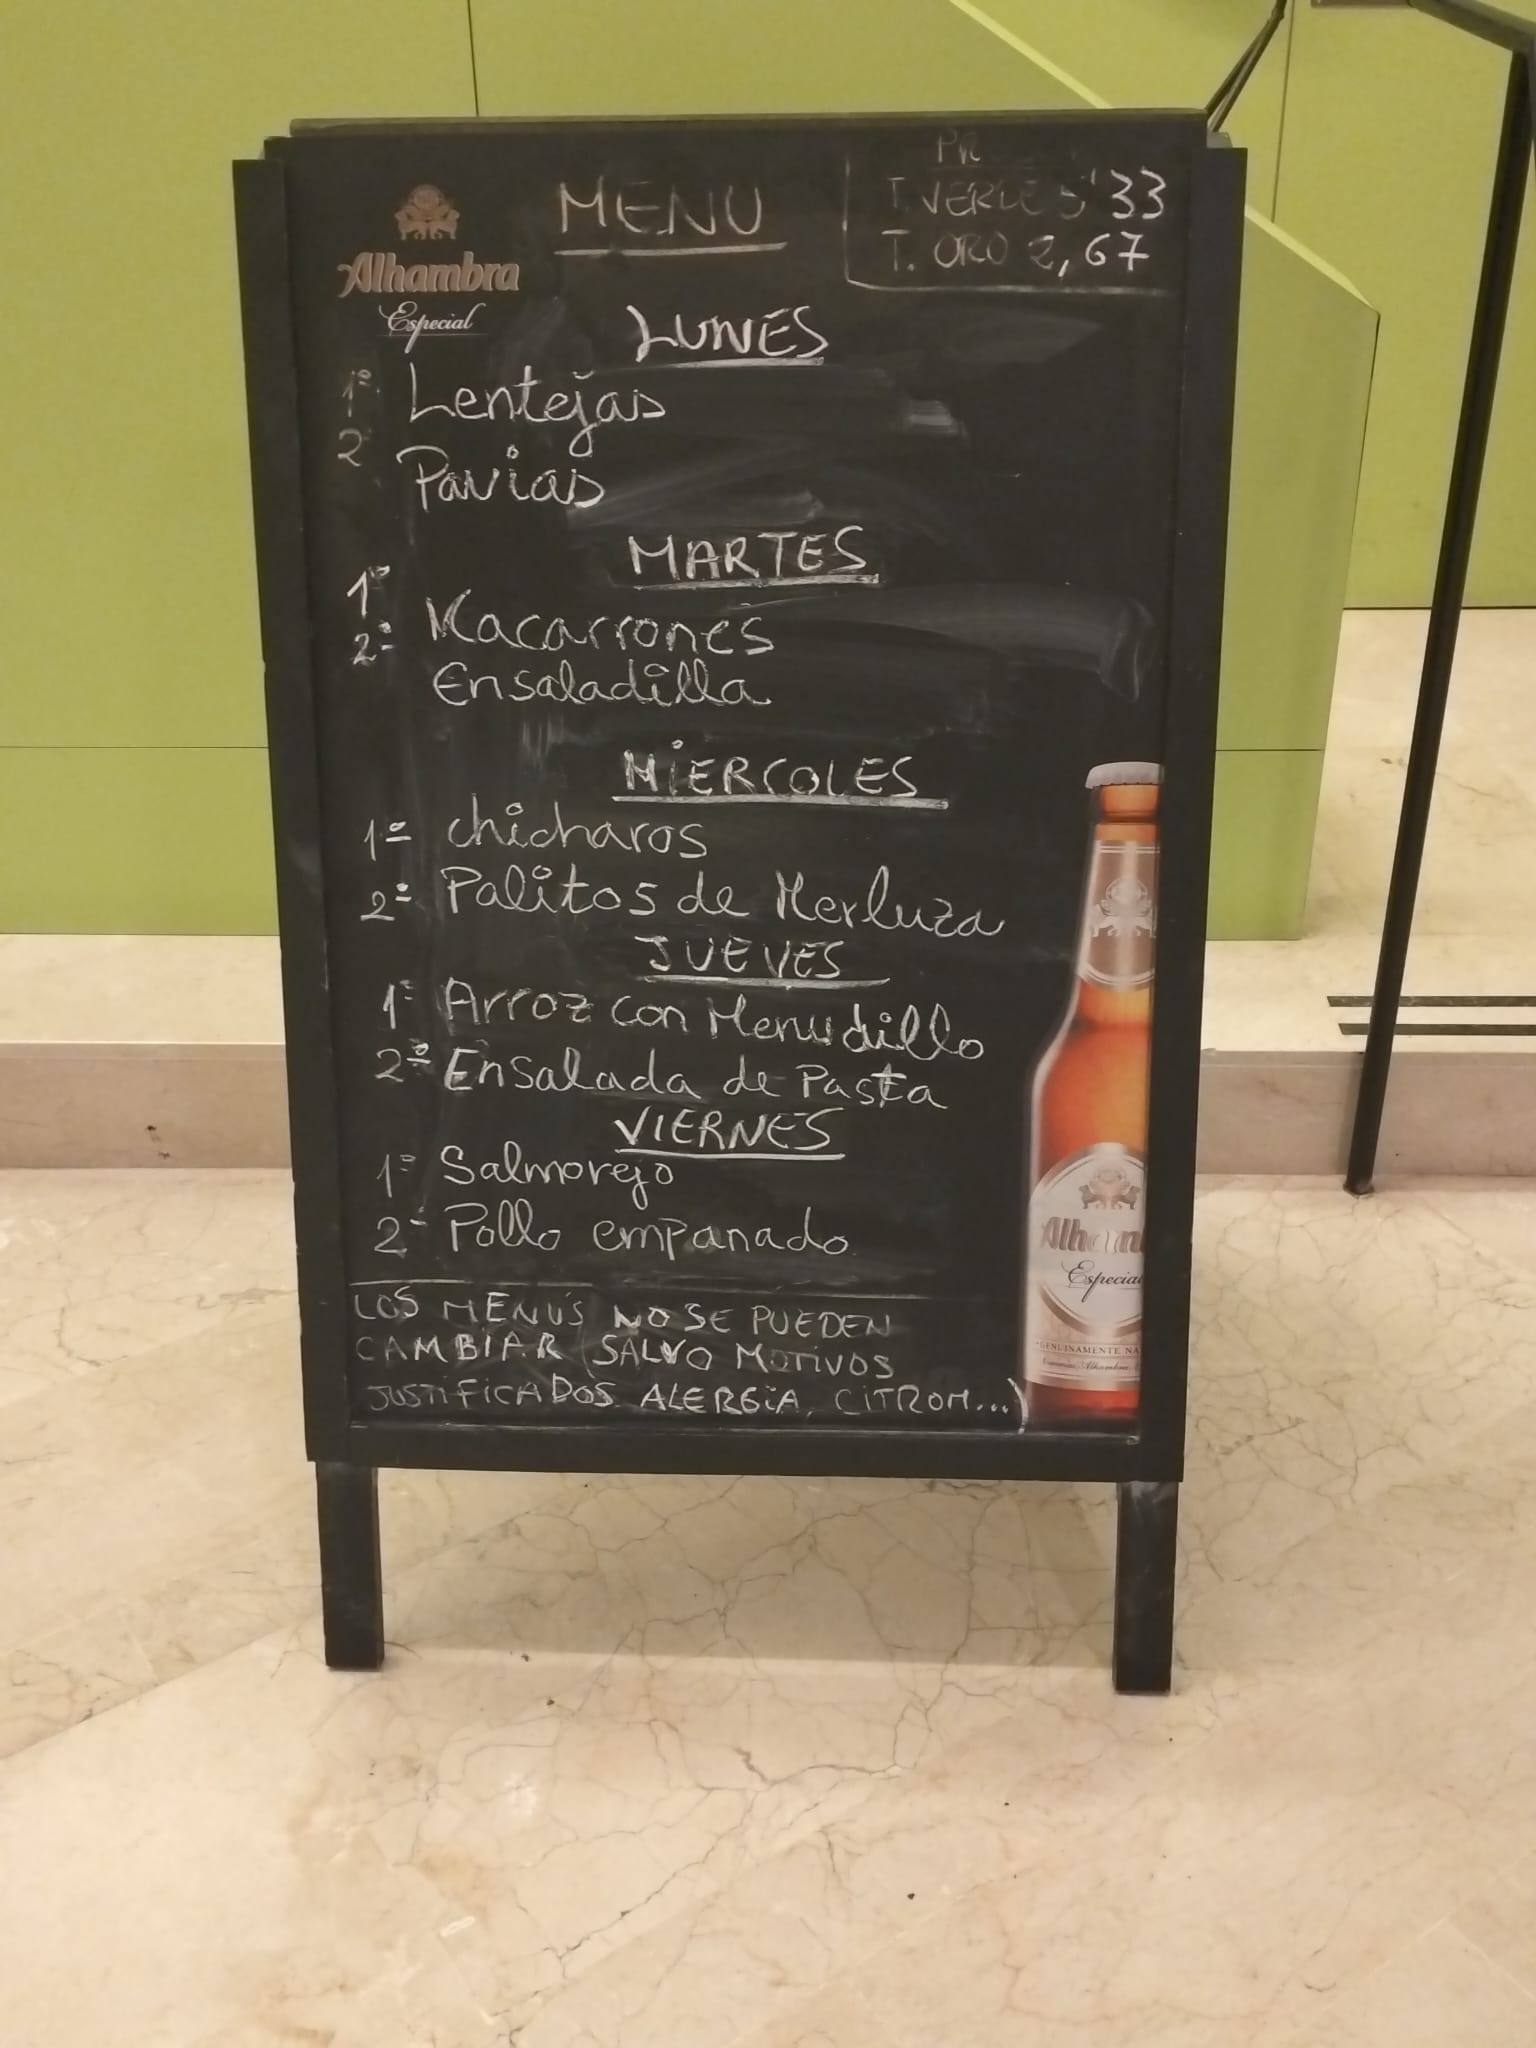 MENU
T. VERDE 5'33
T. ORO 2,67
Alhambra
Especial
LUNES
1º Lentejas
2º Pavias
MARTES
1º Macarrones
2º Ensaladilla
MiERCOLES
1º chicharos
2º Palitos de Merluza
JUEVES
1º Arroz con Menudillo
2º Ensalada de Pasta
VIERNES
1º Salmorejo
2º Pollo empanado
LOS MENUS NO SE PUEDEN
CAMBIAR (SALVO MOTIVOS
JUSTIFICADOS. ALERGiA, CiTROM...)
Alham
Especial
GENUINAMENTE NA